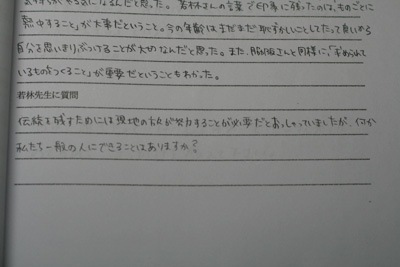 気持ちがやる気になるんだと思った。若林さんの言葉で印象に残ったのは、ものごとに
熱中すること」が大事だということ。今の年齢はまだまだ恥ずかしいことしたって良いから
自分を思いきりぶつけることが大切なんだと思った。また、服部さんと同様に、「求められて
いるものをつくること」が重要だということもわかった。
若林先生に質問
伝統を残すためには現地の方が努力することが必要だとおっしゃっていましたが、何か
私たち一般の人にできることはありますか？